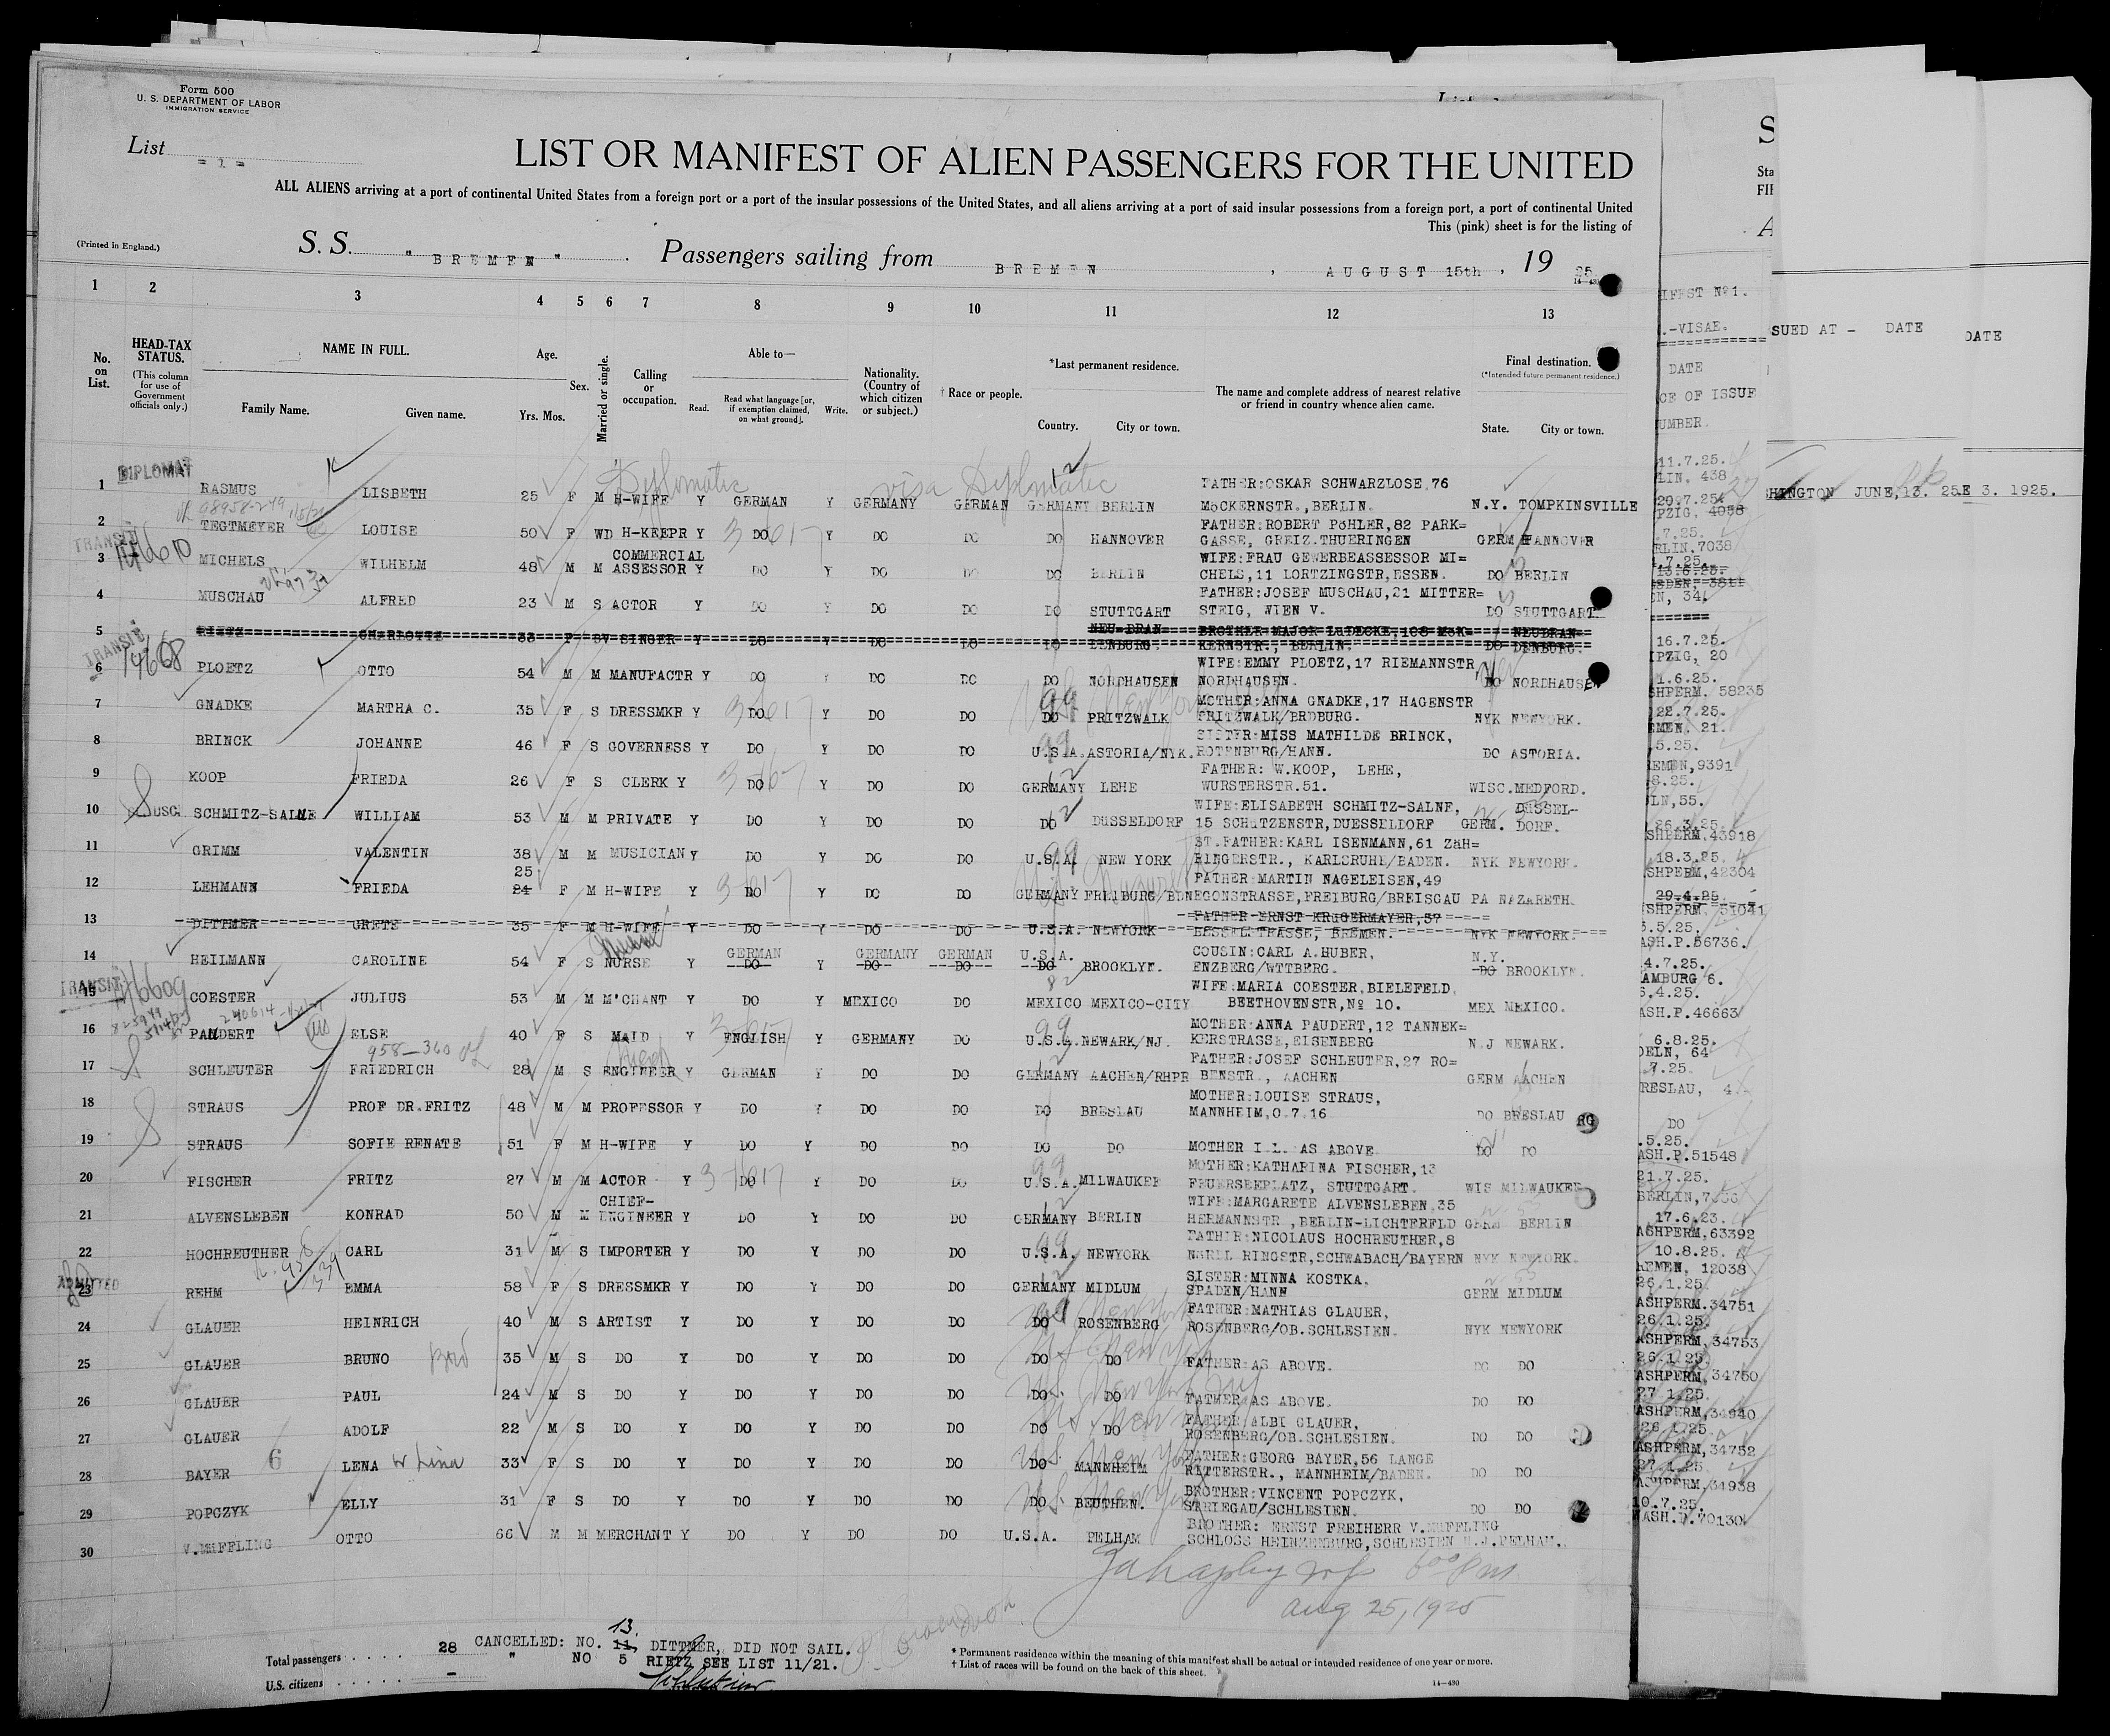 Form 500
U. S. DEPARTMENT OF LABOR
IMMIGRATION SERVICE
List = 1 =
LIST OR MANIFEST OF ALIEN PASSENGERS FOR THE UNITED
ALL ALIENS arriving at a port of continental United States from a foreign port or a port of the insular possessions of the United States, and all aliens arriving at a port of said insular possessions from a foreign port, a port of continental United
This (pink) sheet is for the listing of
(Printed in England.)
S. S. " BREMEN " Passengers sailing from BREMEN , AUGUST 15th , 19 25
1 2 3 4 5 6 7 8 9 10 11 12 13
No. on List.
HEAD-TAX STATUS.
(This column for use of Government officials only.)
NAME IN FULL.
Family Name. Given name.
Age.
Yrs. Mos.
Sex.
Married or single.
Calling or occupation.
Able to—
Read. Read what language [or, if exemption claimed, on what ground]. Write.
Nationality. (Country of which citizen or subject.)
† Race or people.
*Last permanent residence.
Country. City or town.
The name and complete address of nearest relative or friend in country whence alien came.
Final destination.
(*Intended future permanent residence.)
State. City or town.
DIPLOMAT
Diplomatic visa Diplomatic
1 RASMUS LISBETH 25 F M H-WIFE Y GERMAN Y GERMANY GERMAN GERMANY BERLIN FATHER:OSKAR SCHWARZLOSE,76 MöCKERNSTR.,BERLIN. N.Y. TOMPKINSVILLE
2 TEGTMEYER LOUISE 50 F WD H-KEEPR Y DO Y DO DO DO HANNOVER FATHER:ROBERT PöHLER,82 PARK= GASSE, GREIZ.THUERINGEN GERM HANNOVER
TRANSIT
3 MICHELS WILHELM 48 M M COMMERCIAL ASSESSOR Y DO Y DO DO DO BERLIN WIFE:FRAU GEWERBEASSESSOR MI= CHELS,11 LORTZINGSTR,ESSEN. DO BERLIN
4 MUSCHAU ALFRED 23 M S ACTOR Y DO Y DO DO DO STUTTGART FATHER:JOSEF MUSCHAU,21 MITTER= STEIG, WIEN V. DO STUTTGART
5 RIETZ CHARLOTTE 33 F DV SINGER Y DO Y DO DO DO NEU-BRAN DENBURG. BROTHER MAJOR LüDECKE,108 MöK= KERNSTR., BERLIN. DO NEUBRAN= DENBURG.
TRANSIT
14668
6 PLOETZ OTTO 54 M M MANUFACTR Y DO Y DO DO DO NORDHAUSEN WIFE:EMMY PLOETZ,17 RIEMANNSTR NORDHAUSEN. DO NORDHAUSEN
7 GNADKE MARTHA C. 35 F S DRESSMKR Y DO Y DO DO DO PRITZWALK MOTHER:ANNA GNADKE,17 HAGENSTR PRITZWALK/BRDBURG. NYK NEWYORK.
8 BRINCK JOHANNE 46 F S GOVERNESS Y DO Y DO DO U.S.A. ASTORIA/NYK. SISTER:MISS MATHILDE BRINCK, ROTENBURG/HANN. DO ASTORIA.
9 KOOP FRIEDA 26 F S CLERK Y DO Y DO DO GERMANY LEHE FATHER: W.KOOP, LEHE, WURSTERSTR.51. WISC.MEDFORD.
10 USC SCHMITZ-SALNE WILLIAM 53 M M PRIVATE Y DO Y DO DO DO DüSSELDORF WIFE:ELISABETH SCHMITZ-SALNE, 15 SCHüTZENSTR,DUESSELDORF GERM. DüSSEL- DORF.
11 GRIMM VALENTIN 38 M M MUSICIAN Y DO Y DO DO U.S.A. NEW YORK ST.FATHER:KARL ISENMANN,61 ZäH= RINGERSTR., KARLSRUHE/BADEN. NYK NEWYORK.
12 LEHMANN FRIEDA 25 24 F M H-WIFE Y DO Y DO DO GERMANY FREIBURG/BDN FATHER:MARTIN NAGELEISEN,49 EGONSTRASSE,FREIBURG/BREISGAU PA NAZARETH.
13 DITTMER GRETE 35 F M H-WIFE Y DO Y DO DO U.S.A. NEWYORK FATHER ERNST KRüGERMAYER,37 BESSELSTRASSE, BREMEN. NYK NEWYORK.
14 HEILMANN CAROLINE 54 F S NURSE Y GERMAN DO Y GERMANY DO GERMAN DO U.S.A. DO BROOKLYN. COUSIN:CARL A.HUBER, ENZBERG/WTTBERG. N.Y. DO BROOKLYN.
TRANSIT
146609
15 COESTER JULIUS 53 M M M'CHANT Y DO Y MEXICO DO MEXICO MEXICO-CITY WIFE:MARIA COESTER,BIELEFELD. BEETHOVENSTR,Nº 10. MEX MEXICO.
16 PAUDERT ELSE 40 F S MAID Y ENGLISH Y GERMANY DO U.S.A. NEWARK/NJ. MOTHER:ANNA PAUDERT,12 TANNEK= KERSTRASSE,EISENBERG N.J NEWARK.
958—360
17 SCHLEUTER FRIEDRICH 28 M S ENGINEER Y GERMAN Y DO DO GERMANY AACHEN/RHPR FATHER:JOSEF SCHLEUTER,27 RO= BENSTR., AACHEN GERM AACHEN
18 STRAUS PROF DR.FRITZ 48 M M PROFESSOR Y DO Y DO DO DO BRESLAU MOTHER:LOUISE STRAUS, MANNHEIM,O.7.16 DO BRESLAU
19 STRAUS SOFIE RENATE 51 F M H-WIFE Y DO Y DO DO DO DO MOTHER I.L. AS ABOVE DO DO
20 FISCHER FRITZ 27 M M ACTOR Y DO Y DO DO U.S.A. MILWAUKEE MOTHER:KATHARINA FISCHER,13 FEUERSEEPLATZ, STUTTGART. WIS MILWAUKEE
21 ALVENSLEBEN KONRAD 50 M M CHIEF- ENGINEER Y DO Y DO DO GERMANY BERLIN WIFE:MARGARETE ALVENSLEBEN,35 HERMANNSTR.,BERLIN-LICHTERFLD GERM BERLIN
22 HOCHREUTHER CARL 31 M S IMPORTER Y DO Y DO DO U.S.A. NEWYORK FATHER:NICOLAUS HOCHREUTHER,8 NöRDL RINGSTR,SCHWABACH/BAYERN NYK NEWYORK.
ADMITTED
23 REHM EMMA 58 F S DRESSMKR Y DO Y DO DO GERMANY MIDLUM SISTER:MINNA KOSTKA. SPADEN/HANN GERM MIDLUM
24 GLAUER HEINRICH 40 M S ARTIST Y DO Y DO DO DO ROSENBERG FATHER:MATHIAS GLAUER, ROSENBERG/OB.SCHLESIEN. NYK NEWYORK
25 GLAUER BRUNO 35 M S DO Y DO Y DO DO DO DO FATHER:AS ABOVE. DO DO
26 GLAUER PAUL 24 M S DO Y DO Y DO DO DO DO FATHER:AS ABOVE. DO DO
27 GLAUER ADOLF 22 M S DO Y DO Y DO DO DO DO FATHER:ALBI GLAUER, ROSENBERG/OB.SCHLESIEN. DO DO
28 BAYER 6 LENA or Lina 33 F S DO Y DO Y DO DO DO MANNHEIM FATHER:GEORG BAYER,56 LANGE RITTERSTR., MANNHEIM/BADEN. DO DO
29 POPCZYK ELLY 31 F S DO Y DO Y DO DO DO BEUTHEN. BROTHER:VINCENT POPCZYK, STRIEGAU/SCHLESIEN. DO DO
30 V.MüFFLING OTTO 66 M M MERCHANT Y DO Y DO DO U.S.A. PELHAM BROTHER: ERNST FREIHERR V.MüFFLING SCHLOSS HEINZENBURG,SCHLESIEN N.J.PELHAM.
600 Pm
Aug 25, 1925
Total passengers . . . . . 28 CANCELLED: NO. 11, 13. DITTMER, DID NOT SAIL.
" NO 5 RIETZ SEE LIST 11/21.
U.S. citizens . . . . . —
* Permanent residence within the meaning of this manifest shall be actual or intended residence of one year or more.
† List of races will be found on the back of this sheet.
14—430
IFEST Nº1.
.-VISAE.
SUED AT - DATE
DATE
DATE
CE OF ISSUE
UMBER.
11.7.25.
LIN. 438
HINGTON JUNE,13. 25
E 3. 1925.
29.7.25.
PZIG, 4058
.7.25.
RLIN.7038
13.6.25.
16.7.25.
IPZIG, 20
1.6.25.
SHPERM. 58235
22.7.25.
EMEN. 21.
.5.25.
EMEN,9391
8.25.
LN,55.
26.3.25.
SHPERM,43918
18.3.25.
SHPERM,42304
29.4.25.
SHPERM, 51041
3.5.25.
ASH.P.56736.
4.7.25.
AMBURG 6.
6.4.25.
ASH.P.46663
6.8.25.
OELN, 64
.7.25.
RESLAU, 4
DO
.5.25.
ASH.P.51548
21.7.25.
17.6.23.
ASHPERM,63392
10.8.25.
REMEN, 12038
26.1.25
ASHPERM.34751
26.1.25.
ASHPERM,34753
26.1.25.
ASHPERM,34750
27 1.25.
ASHPERM,34940
26.1.25
ASHPERM,34752
27.1.25.
ASHPERM,34938
10.7.25.
WASH.P.70130